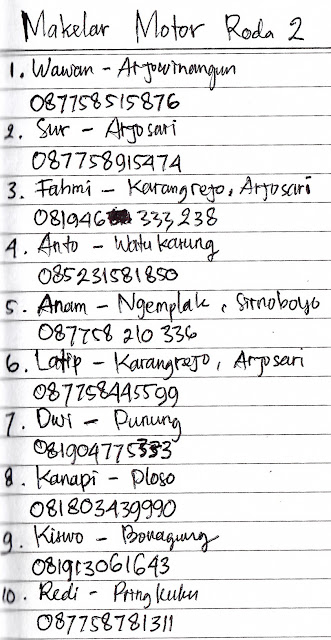 Makelar Motor Roda 2
1. Wawan - Arjowinangun
087758515876
2. Sur - Arjosari
087758915474
3. Fahmi - Karangrejo, Arjosari
081946 333 238
4. Anto - Watukarung
085231581850
5. Anam - Ngemplak, Sirnoboyo
087758 210 336
6. Latip - Karangrejo, Arjosari
087758445599
7. Dwi - Punung
081904775333
8. Kanapi - Ploso
081803439990
9. Kiswo - Bonagung
081913061643
10. Redi - Pringkuku
087758781311